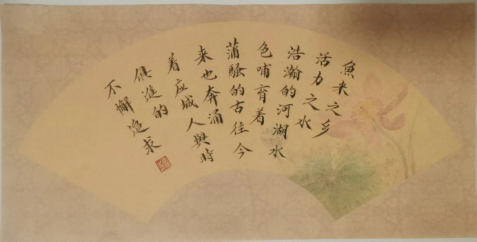 魚米之乡
活力之水
浩瀚的河湖水
色哺育着
蒲騷的古往今
来也奔涌
着应城人與时
俱進的
不懈追求